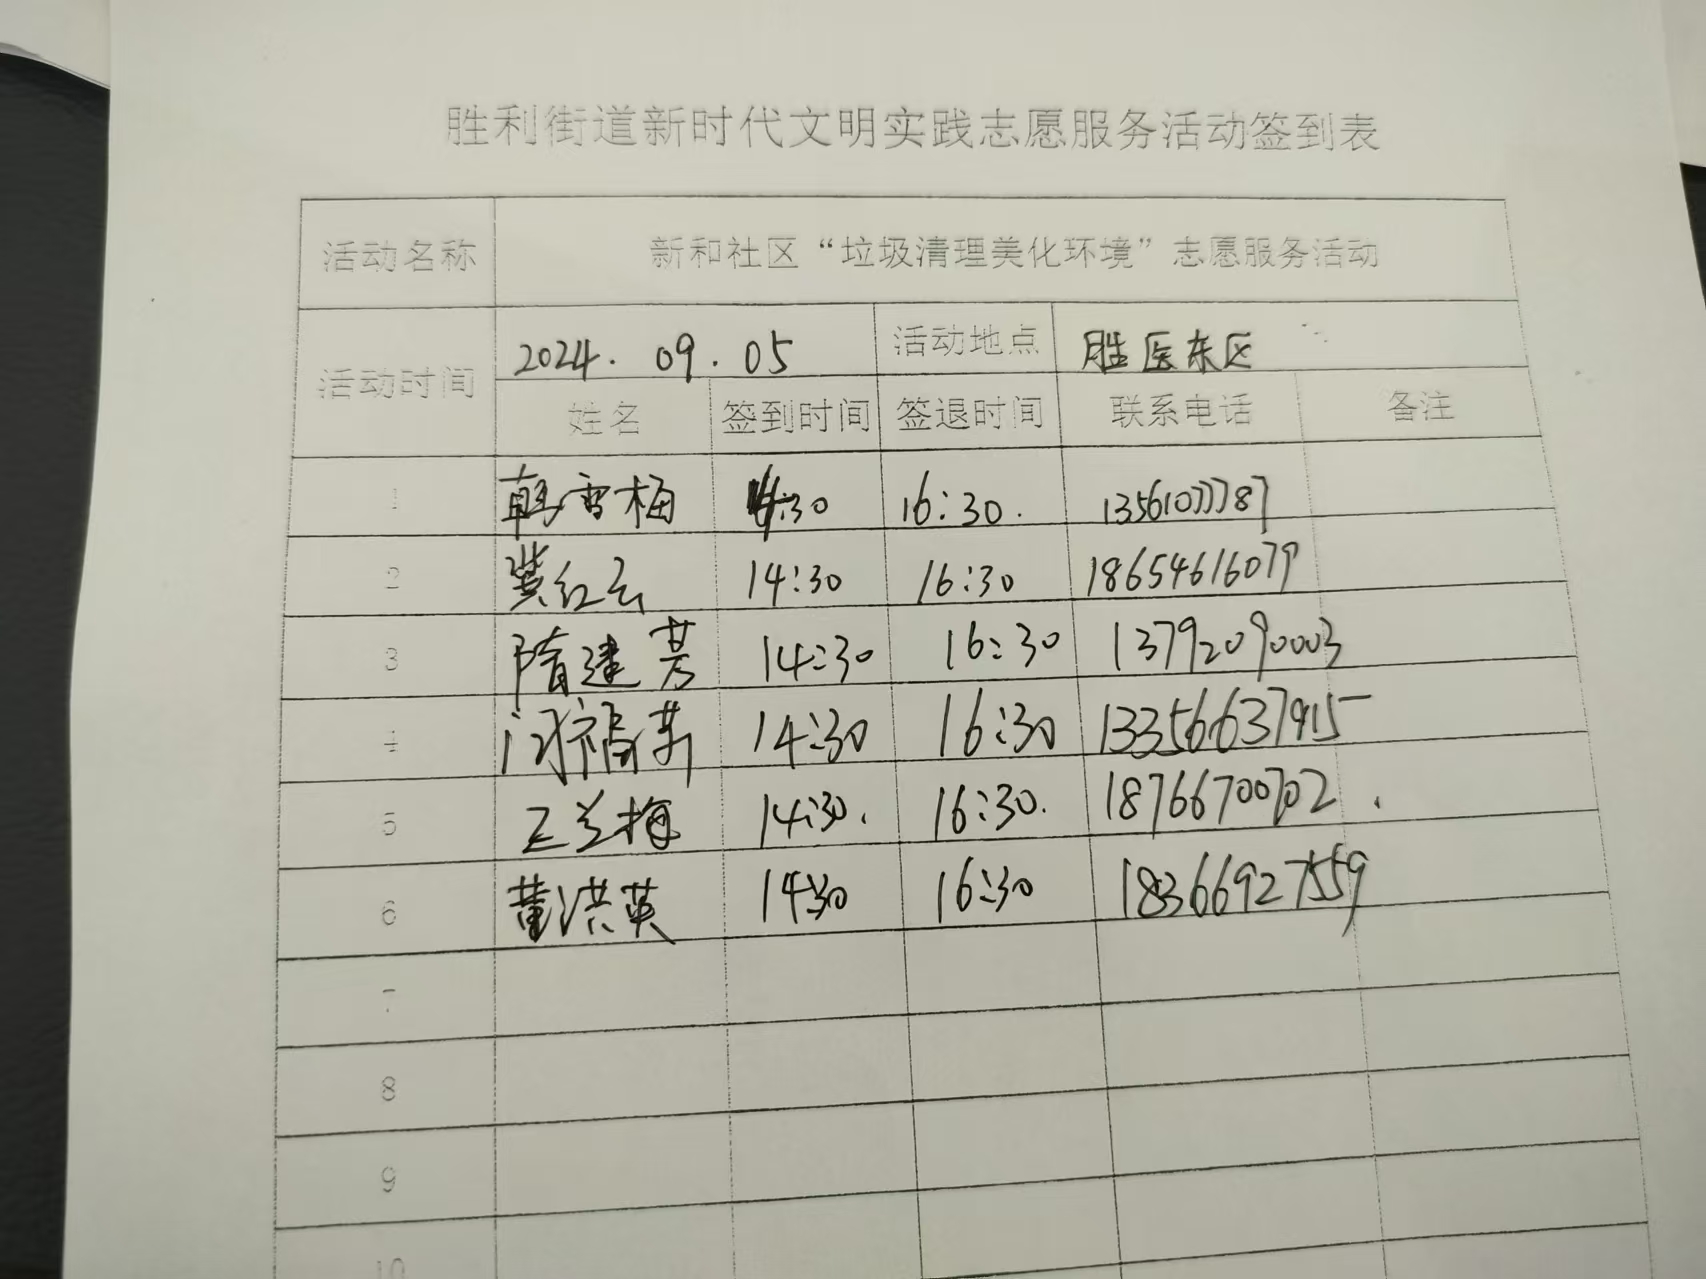 胜利街道新时代文明实践志愿服务活动签到表
活动名称 新和社区“垃圾清理美化环境”志愿服务活动
活动时间 2024.09.05 活动地点 胜医东区
姓名 签到时间 签退时间 联系电话 备注
1 韩雪梅 14:30 16:30. 13561077787
2 冀红云 14:30 16:30 18654616079
3 隋建芳 14:30 16:30 13792090003
4 门福荣 14:30 16:30 13356637915
5 王兰梅 14:30. 16:30. 18766700702.
6 董洪英 14:30 16:30 18366927559
7
8
9
10